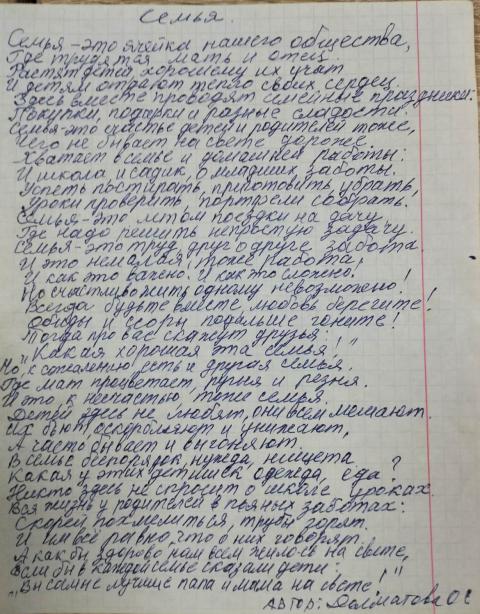 Семья.
Семья - это ячейка нашего общества,
Где трудятся мать и отец.
Растят детей, хорошему их учат
И детям отдают тепло своих сердец.
Здесь вместе проводят семейные праздники.
Покупки, подарки и разные сладости.
Семья-это счастье детей и родителей тоже,
Чего не бывает на свете дороже.
Хватает в семье и домашней работы:
И школа, и садик, о младших заботы.
Успеть постирать, приготовить, убрать,
Уроки проверить, портфели собрать.
Семья-это летом поездки на дачу,
Где надо решить непростую задачу.
Семья-это труд, друг о друге забота.
И это немалая тоже работа,
И как это важно! И как это сложно!
Но счастливо жить одному невозможно!
Всегда будьте вместе, любовь берегите!
Обиды и ссоры подальше гоните!
Тогда про вас скажут друзья:
"Какая хорошая эта семья!"
Но, к сожалению, есть и другая семья,
Где мат процветает, ругня и резня.
И это, к несчастью, тоже семья.
Детей здесь не любят, они всем мешают.
Их бьют, оскорбляют и унижают,
А часто бывает и выгоняют.
В семье беспорядок, нужда, нищета
Какая у этих детишек одежда, еда?
Никто здесь не спросит о школе, уроках.
Вся жизнь у родителей в пьяных заботах:
Скорей похмелиться, трубы горят.
И им всё равно, что о них говорят.
А как бы здорово нам всем жилось на свете,
Если бы в каждой семье сказали дети:
"Вы самые лучшие папа и мама на свете!"
Автор: Долматова О С